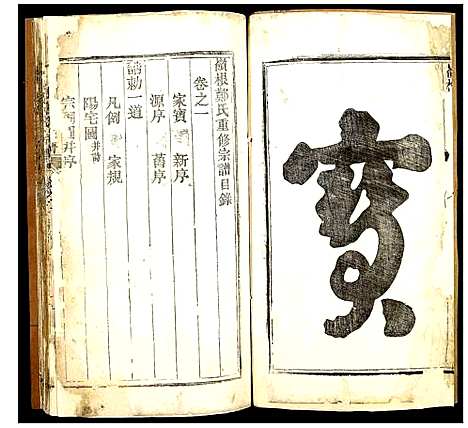 寶
嶺根鄭氏重修宗譜目錄
卷之一
家寶 新序
源序 舊序
誥勅一道
凡例 家規
陽宅圖并詩
宗祠圖并序